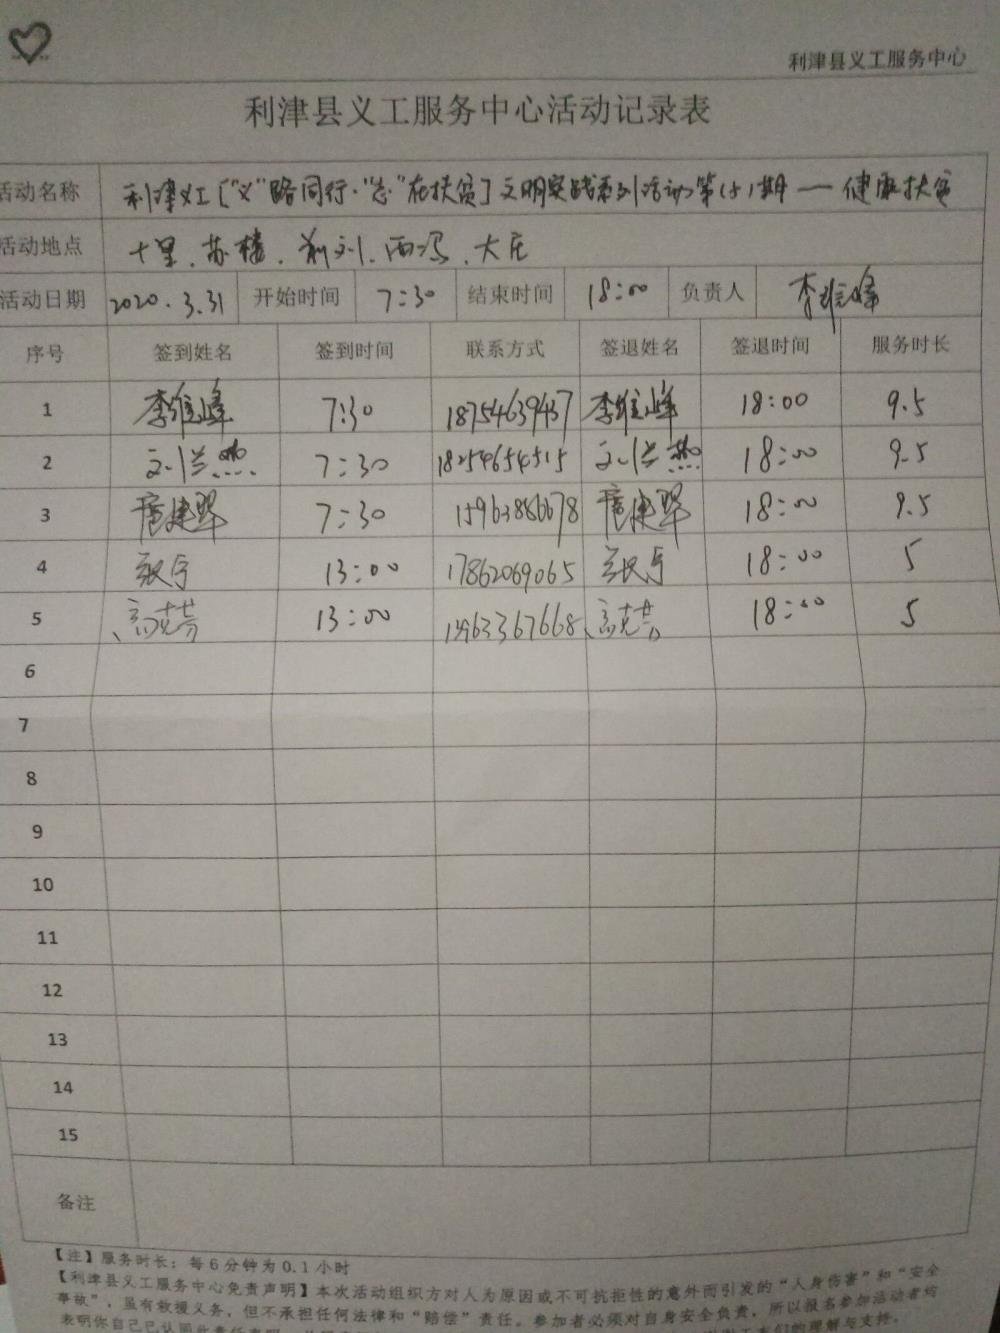 利津县义工服务中心
利津县义工服务中心活动记录表
活动名称 利津义工["义"路同行·"志"在扶贫]文明实践系列活动第(5)期——健康扶贫
活动地点 十里、苏楼、前刘、西冯、大庄
活动日期 2020.3.31 开始时间 7:30 结束时间 18:00 负责人 李维峰
序号 签到姓名 签到时间 联系方式 签退姓名 签退时间 服务时长
1 李维峰 7:30 18754639437 李维峰 18:00 9.5
2 刘兰热 7:30 18254654515 刘兰热 18:00 9.5
3 7:30 15963886678 18:00 9.5
4 13:00 17862069065 18:00 5
5 13:00 15963367668 18:00 5
6
7
8
9
10
11
12
13
14
15
备注
【注】服务时长：每6分钟为0.1小时
【利津县义工服务中心免责声明】本次活动组织方对人为原因或不可抗拒性的意外而引发的"人身伤害"和"安全
事故"，虽有救援义务，但不承担任何法律和"赔偿"责任。参加者必须对自身安全负责，所以报名参加活动者均
表明你自己已认同此责任声明
们的理解与支持。